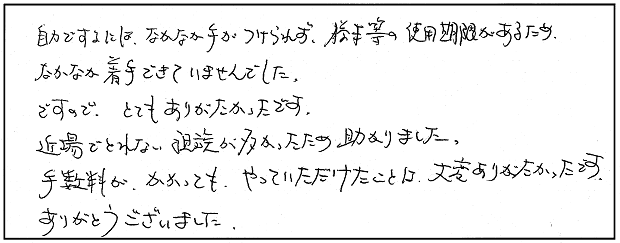 自力でするには、なかなか手がつけられず、謄本等の使用期限があるため、
なかなか着手できていませんでした。
ですので、とてもありがたかったです。
近場でとれない謄本が多かったため助かりました。
手数料が、かかっても、やっていただけたことは、大変ありがたかったです。
ありがとうございました。